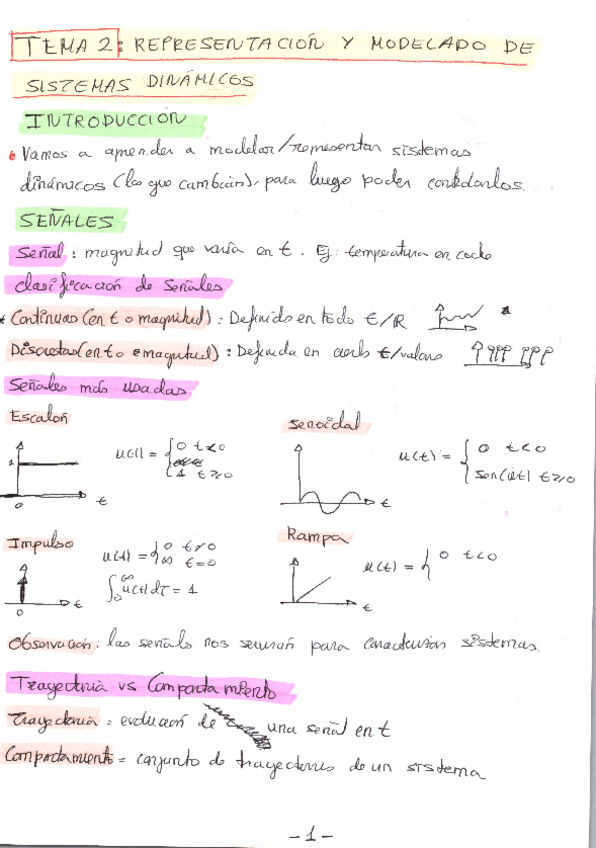 TEMA 2: REPRESENTACIÓN Y MODELADO DE
SISTEMAS DINÁMICOS
INTRODUCCIÓN
Vamos a aprender a modelar/representar sistemas
dinámicos (los que cambian), para luego poder controlarlos.
SEÑALES
Señal: magnitud que varía en t. Ej: temperatura en coche
Clasificación de señales
* Continuas (en t o magnitud): Definida en todo t/R
Discretas (en t o magnitud): Definida en ciertos t/valores
Señales más usadas
Escalón
1
0
t
u(t) = { 0 t<0
1 t≥0
senoidal
t
u(t) = { 0 t<0
sen(ωt) t≥0
Impulso
0
t
u(t) = { 0 t≠0
∞ t=0
∫₀^∞ u(t) dτ = 1
Rampa
t
u(t) = { 0 t<0
Observación: las señales nos servirán para caracterizar sistemas.
Trayectoria vs Comportamiento
Trayectoria: evolución de una señal en t
Comportamiento = conjunto de trayectorias de un sistema
-1-